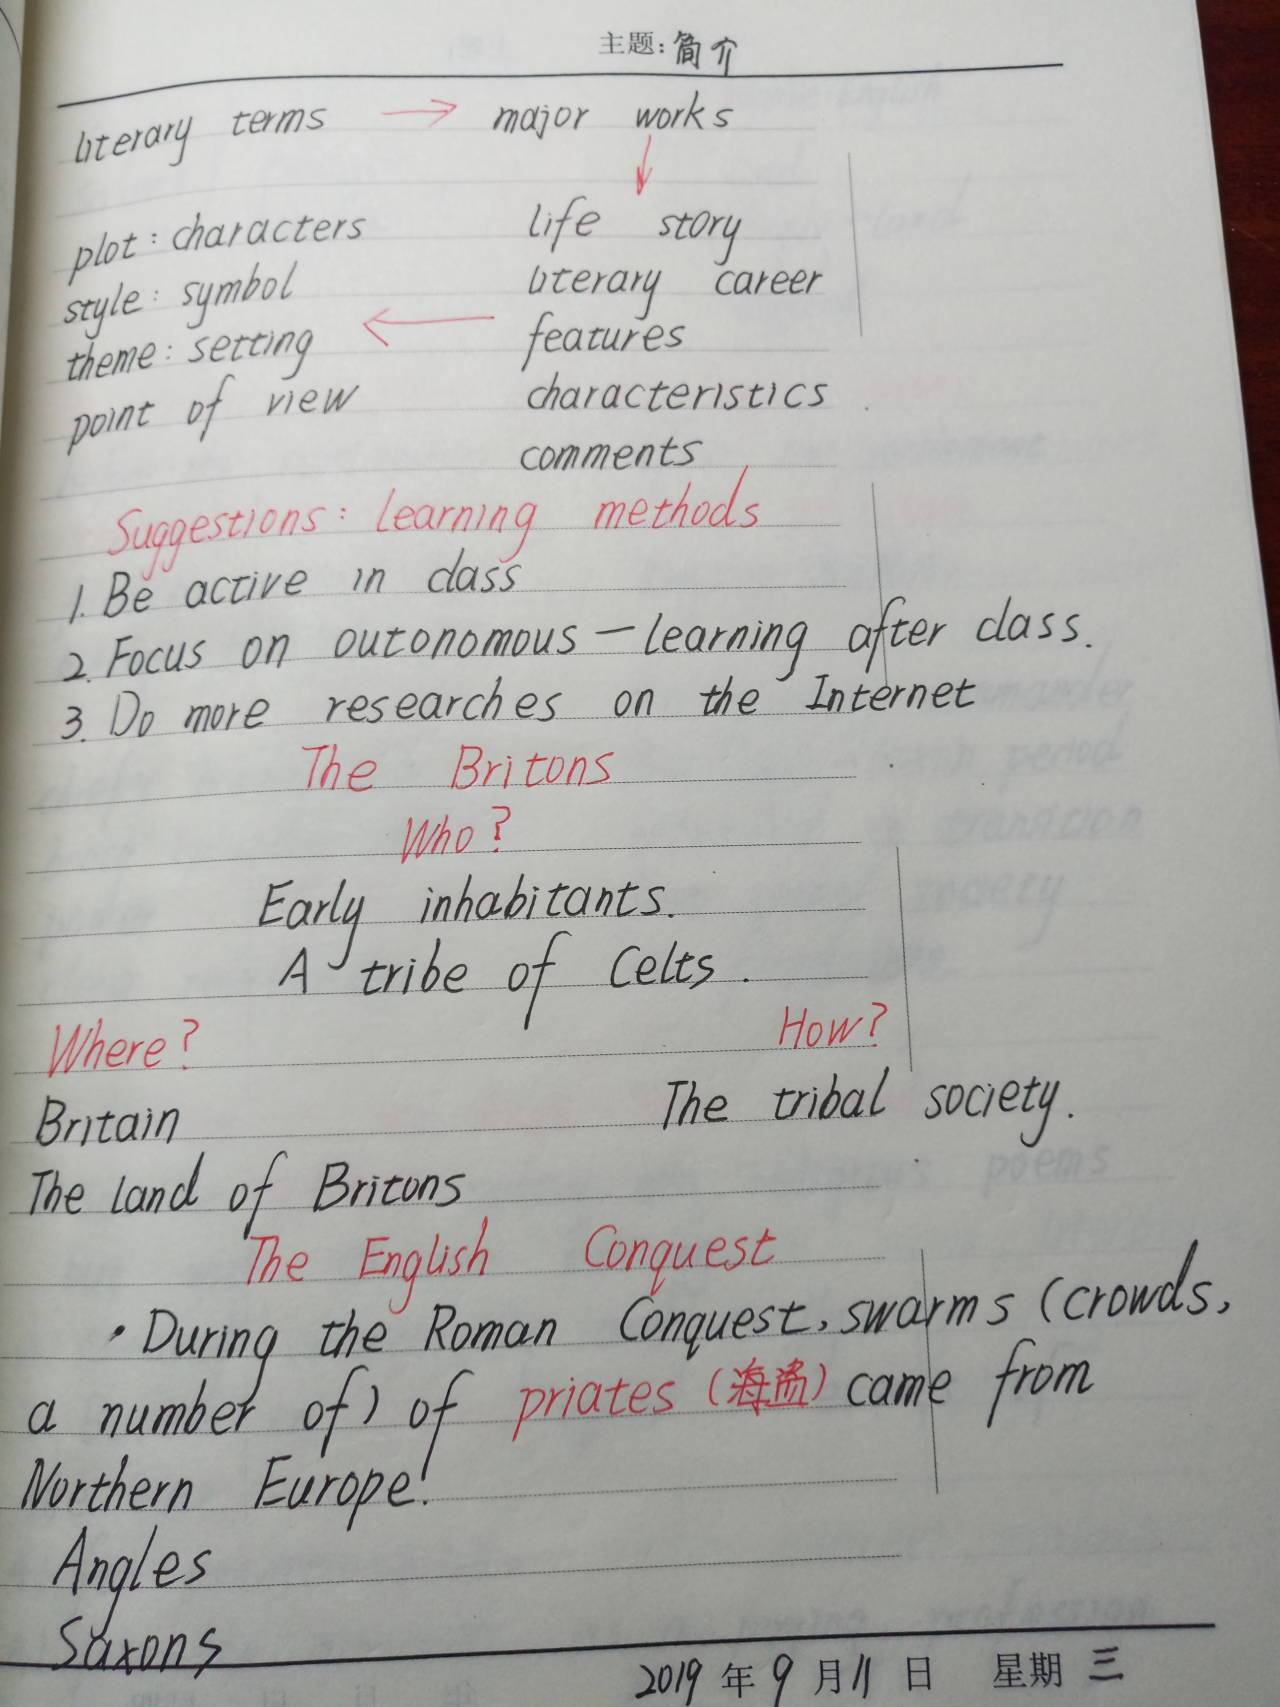 主题:简介
literary terms → major works
↓
plot: characters
style: symbol
theme: setting
point of view
life story
literary career
←
features
characteristics
comments
Suggestions: learning methods
1. Be active in class
2. Focus on outonomous—learning after class.
3. Do more researches on the Internet
The Britons
Who?
Early inhabitants.
A tribe of Celts.
Where?
Britain
The land of Britons
How?
The tribal society.
The English Conquest
·During the Roman Conquest, swarms (crowds,
a number of) of priates (海盗) came from
Northern Europe.
Angles
Saxons
2019年9月11日 星期三